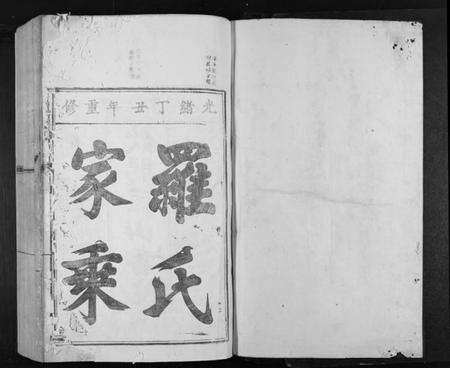 光緒丁丑年重修
羅氏
家乘